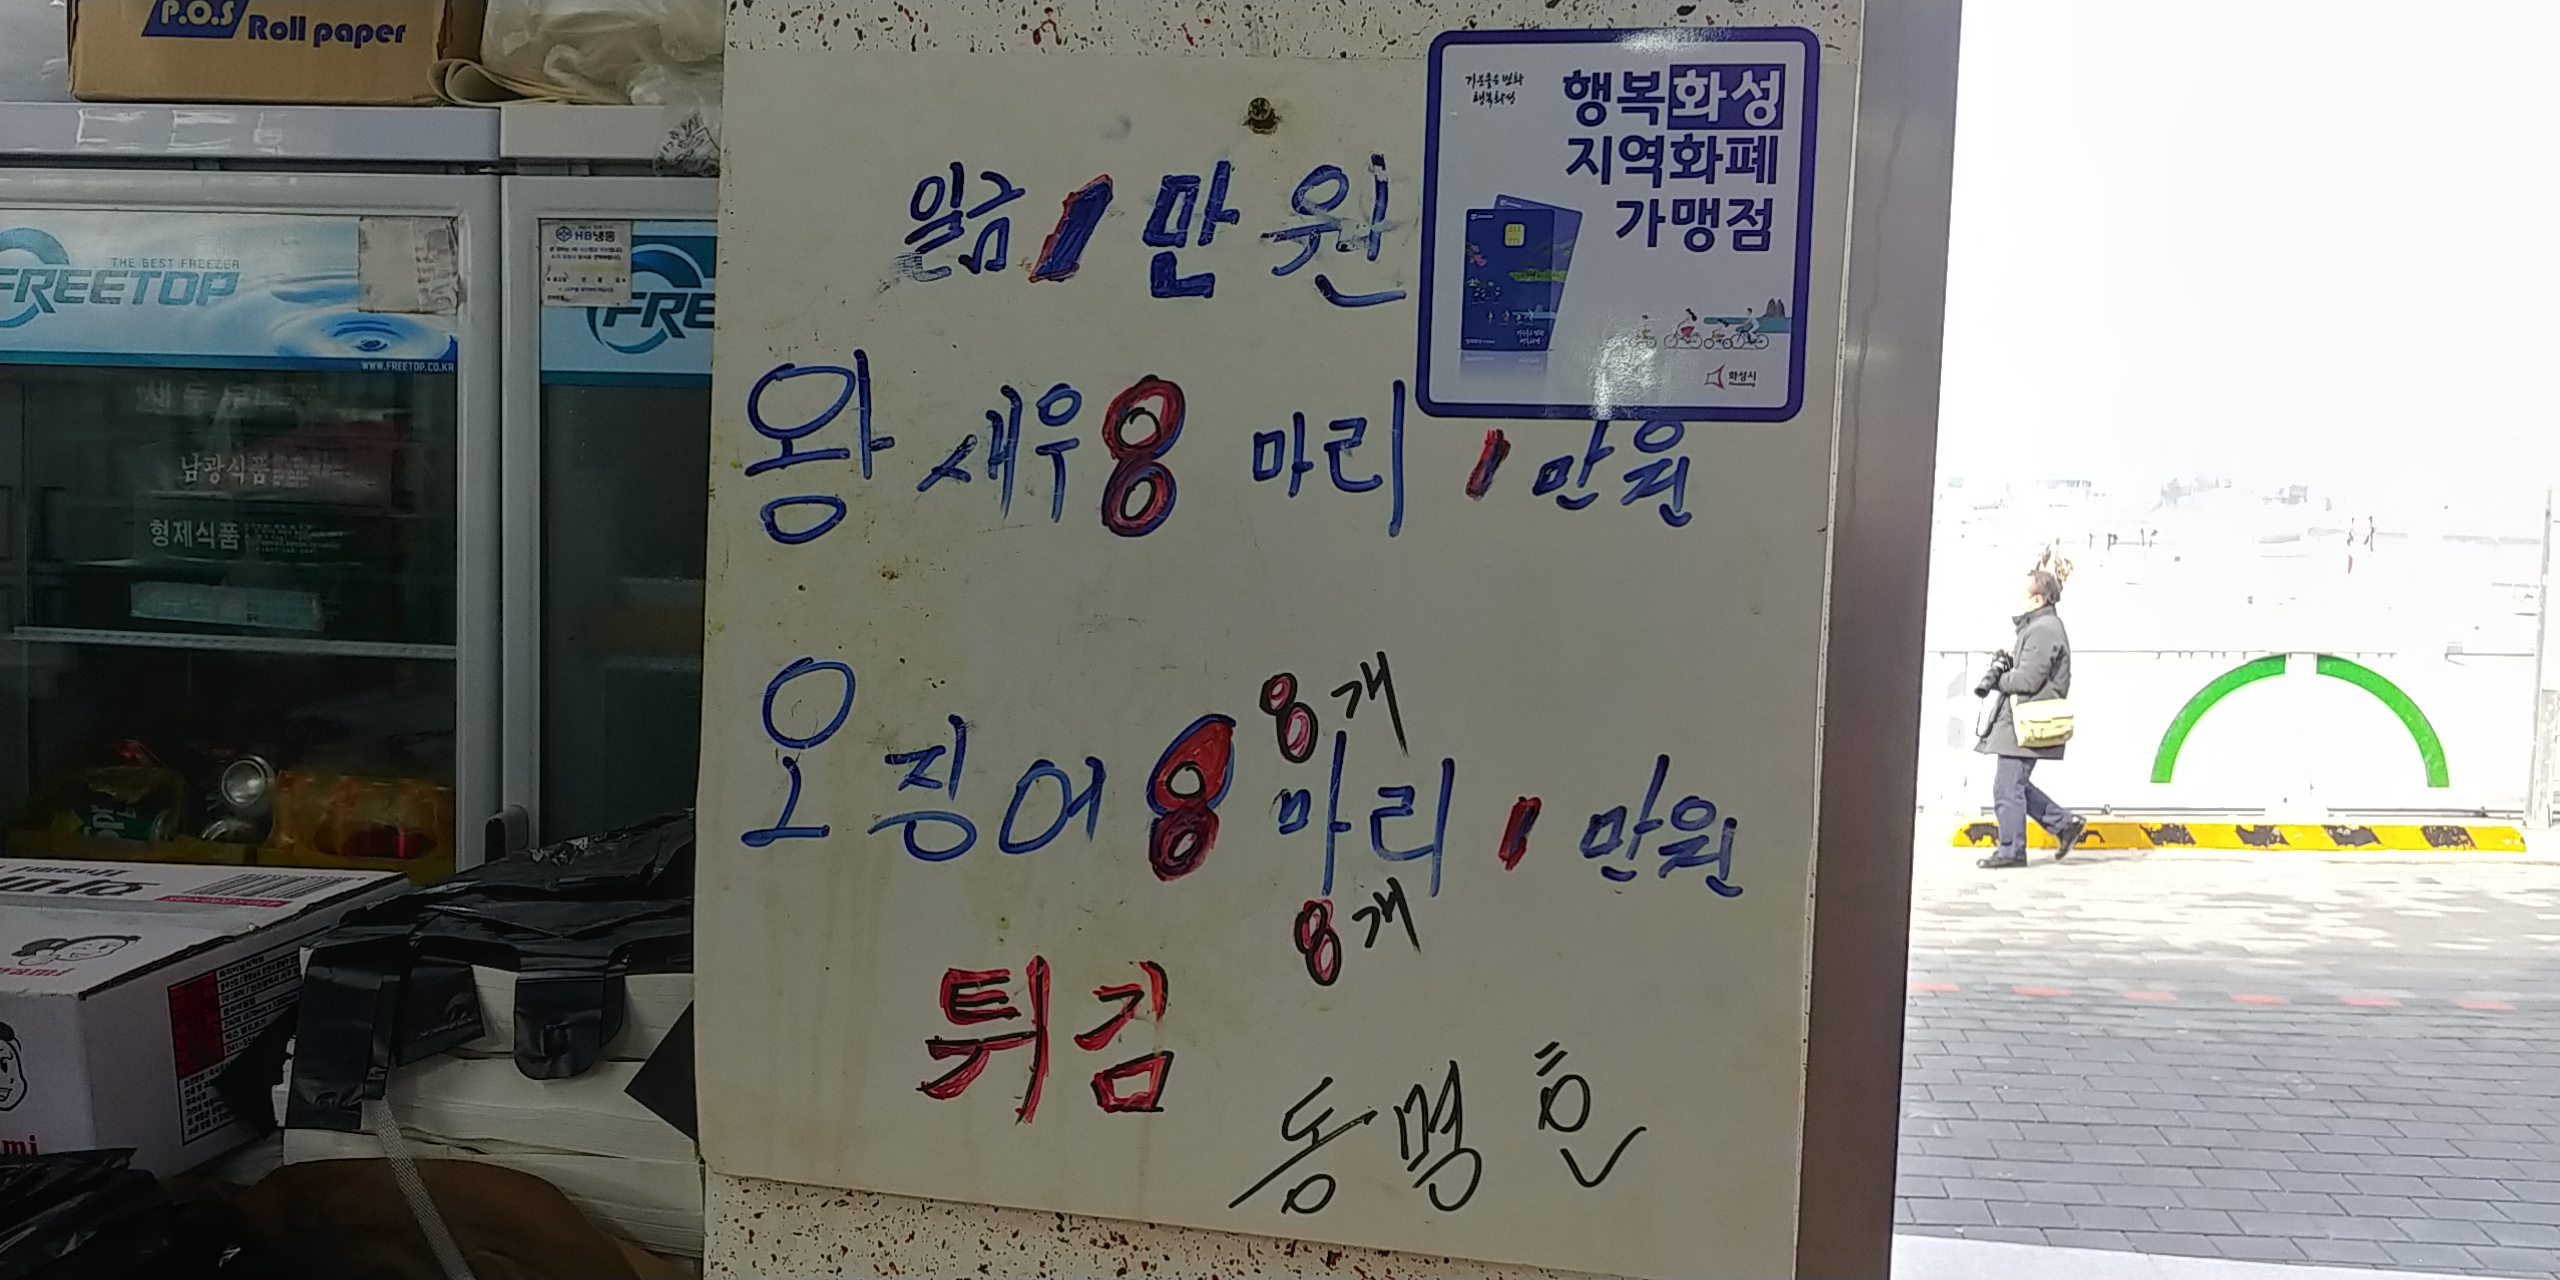 P.O.S
Roll paper
THE BEST FREEZER
FREETOP
WWW.FREETOP.CO.KR
HB냉동
FRE
남광식품
형제식품
일금 1만원
왕새우 8마리 1만원
8개
오징어 8마리 1만원
8개
튀김
동명호
기분좋은 변화
행복화성
행복화성
지역화폐
가맹점
화성시
mi